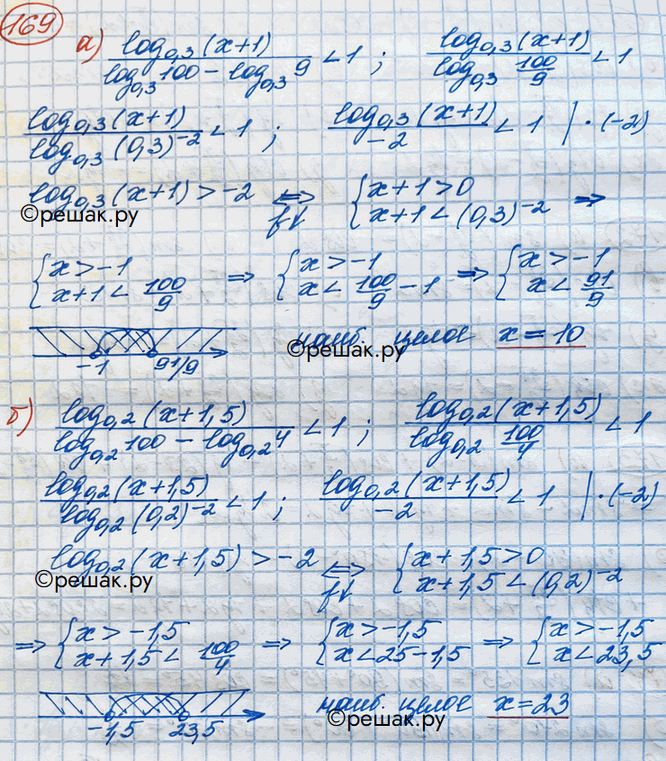 169
а) log₀,₃(x+1) / (log₀,₃100 − log₀,₃9) < 1 ; log₀,₃(x+1) / log₀,₃ 100/9 < 1
log₀,₃(x+1) / log₀,₃(0,3)⁻² < 1 ; log₀,₃(x+1) / −2 < 1 | · (−2)
log₀,₃(x+1) > −2 ⇔ f↓ { x+1 > 0 x+1 < (0,3)⁻² ⇒
©решак.ру
{ x > −1 x+1 < 100/9 ⇒ { x > −1 x < 100/9 − 1 ⇒ { x > −1 x < 91/9
−1 91/9 наиб. целое x = 10
©решак.ру
б) log₀,₂(x+1,5) / (log₀,₂100 − log₀,₂4) < 1 ; log₀,₂(x+1,5) / log₀,₂ 100/4 < 1
log₀,₂(x+1,5) / log₀,₂(0,2)⁻² < 1 ; log₀,₂(x+1,5) / −2 < 1 | · (−2)
log₀,₂(x+1,5) > −2 ⇔ f↓ { x+1,5 > 0 x+1,5 < (0,2)⁻²
©решак.ру
⇒ { x > −1,5 x+1,5 < 100/4 ⇒ { x > −1,5 x < 25−1,5 ⇒ { x > −1,5 x < 23,5
−1,5 23,5 наиб. целое x = 23
©решак.ру